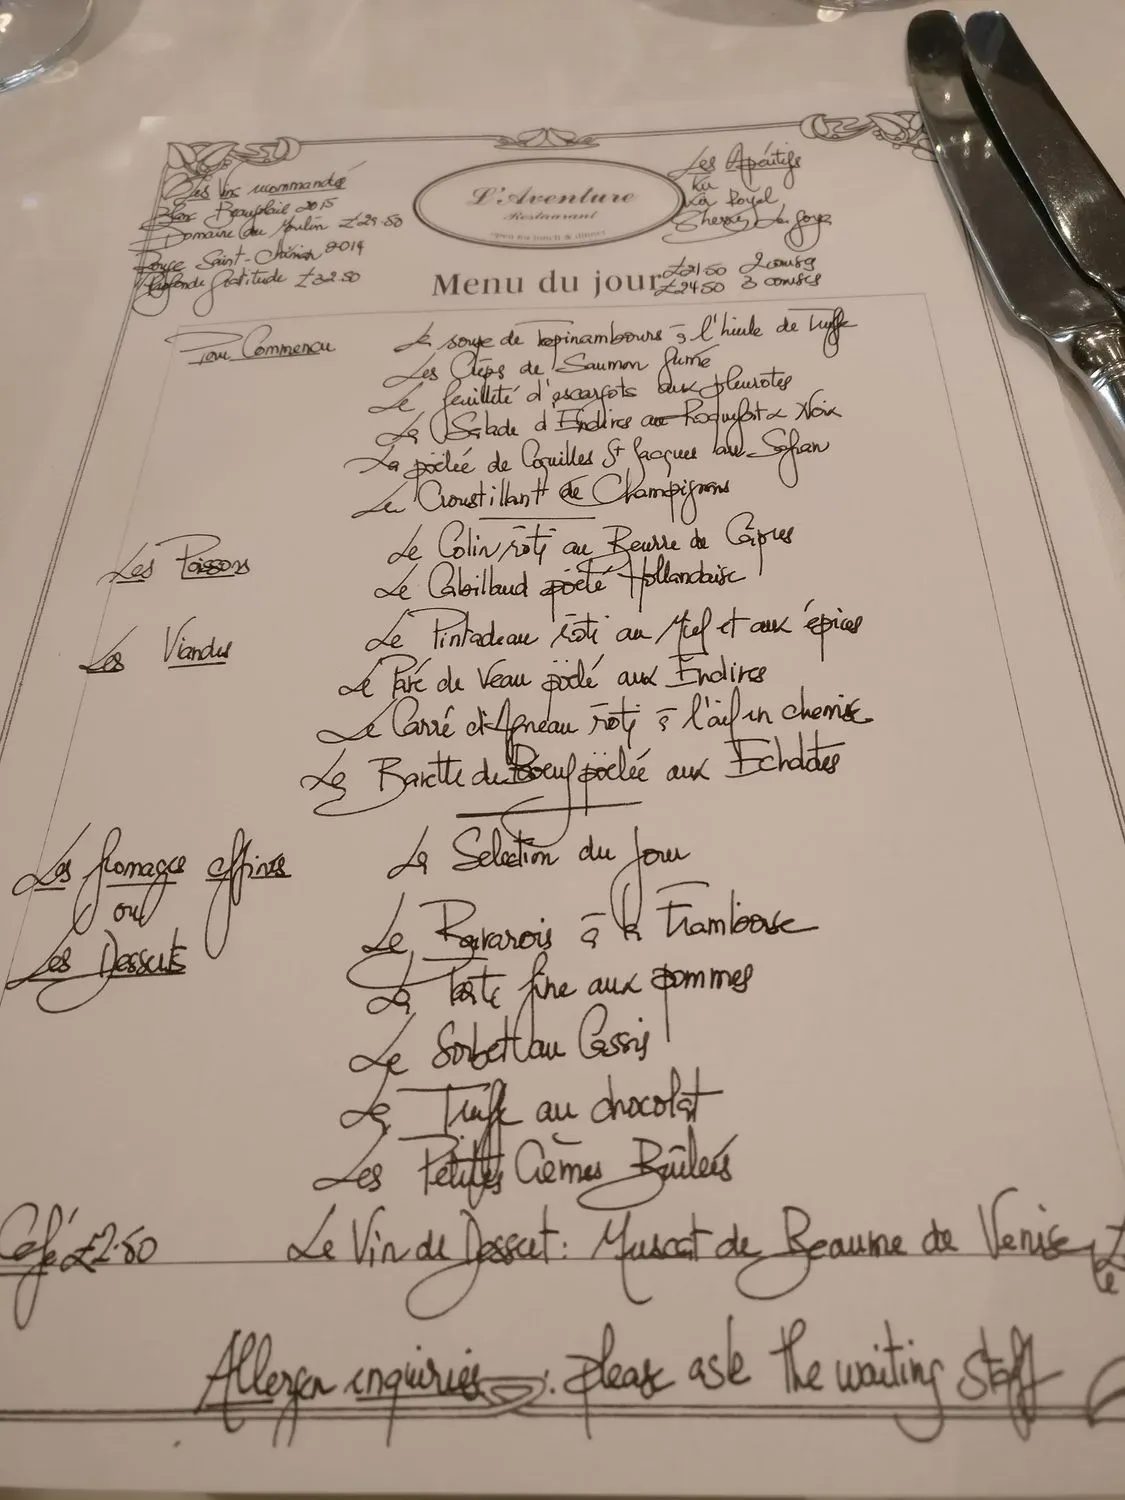 Les Vins recommandés
Blanc Beaujolais 2015
Domaine du Moulin £29.50
Rouge Saint-Chinian 2014
Profonde Gratitude £32.50
L'Aventure
Restaurant
open for lunch & dinner
Les Apéritifs
Kir
Kir Royal
Sherry
Menu du jour
£21.50 2 courses
£24.50 3 courses
Pour Commencer
la soupe de Topinambours à l'huile de Truffe
Les Crêpes de Saumon fumé
Le feuilleté d'escargots aux pleurotes
La Salade d'Endives au Roquefort & Noix
La pöelée de Coquilles St Jacques au Safran
Le Croustillant de Champignons
Les Poissons
Le Colin rôti au Beurre de Câpres
Le Cabillaud pöelé Hollandaise
Les Viandes
Le Pintadeau rôti au Miel et aux épices
Le Pavé de Veau pöelé aux Endives
Le Carré d'Agneau rôti à l'ail en chemise
La Bavette de Boeuf pöelée aux Echalotes
Les fromages affinés
ou
Les Desserts
La Selection du Jour
Le Bavarois à la Framboise
La Tarte fine aux pommes
Le Sorbet au Cassis
La Truffe au chocolat
Les Petites Crèmes Brûleés
Café £2.50
Le Vin de Dessert: Muscat de Beaume de Venise
Allergen inquiries: please ask the waiting staff